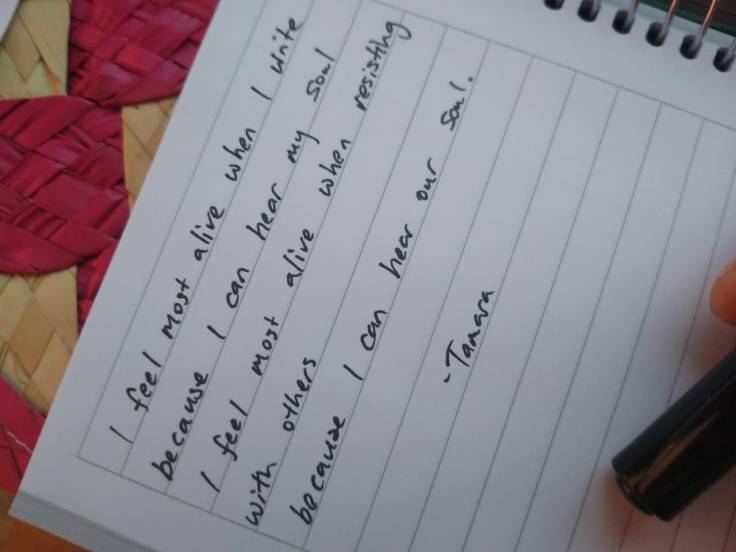 I feel most alive when I write
because I can hear my soul
I feel most alive when resisting
with others
because I can hear our soul.
-Tamara